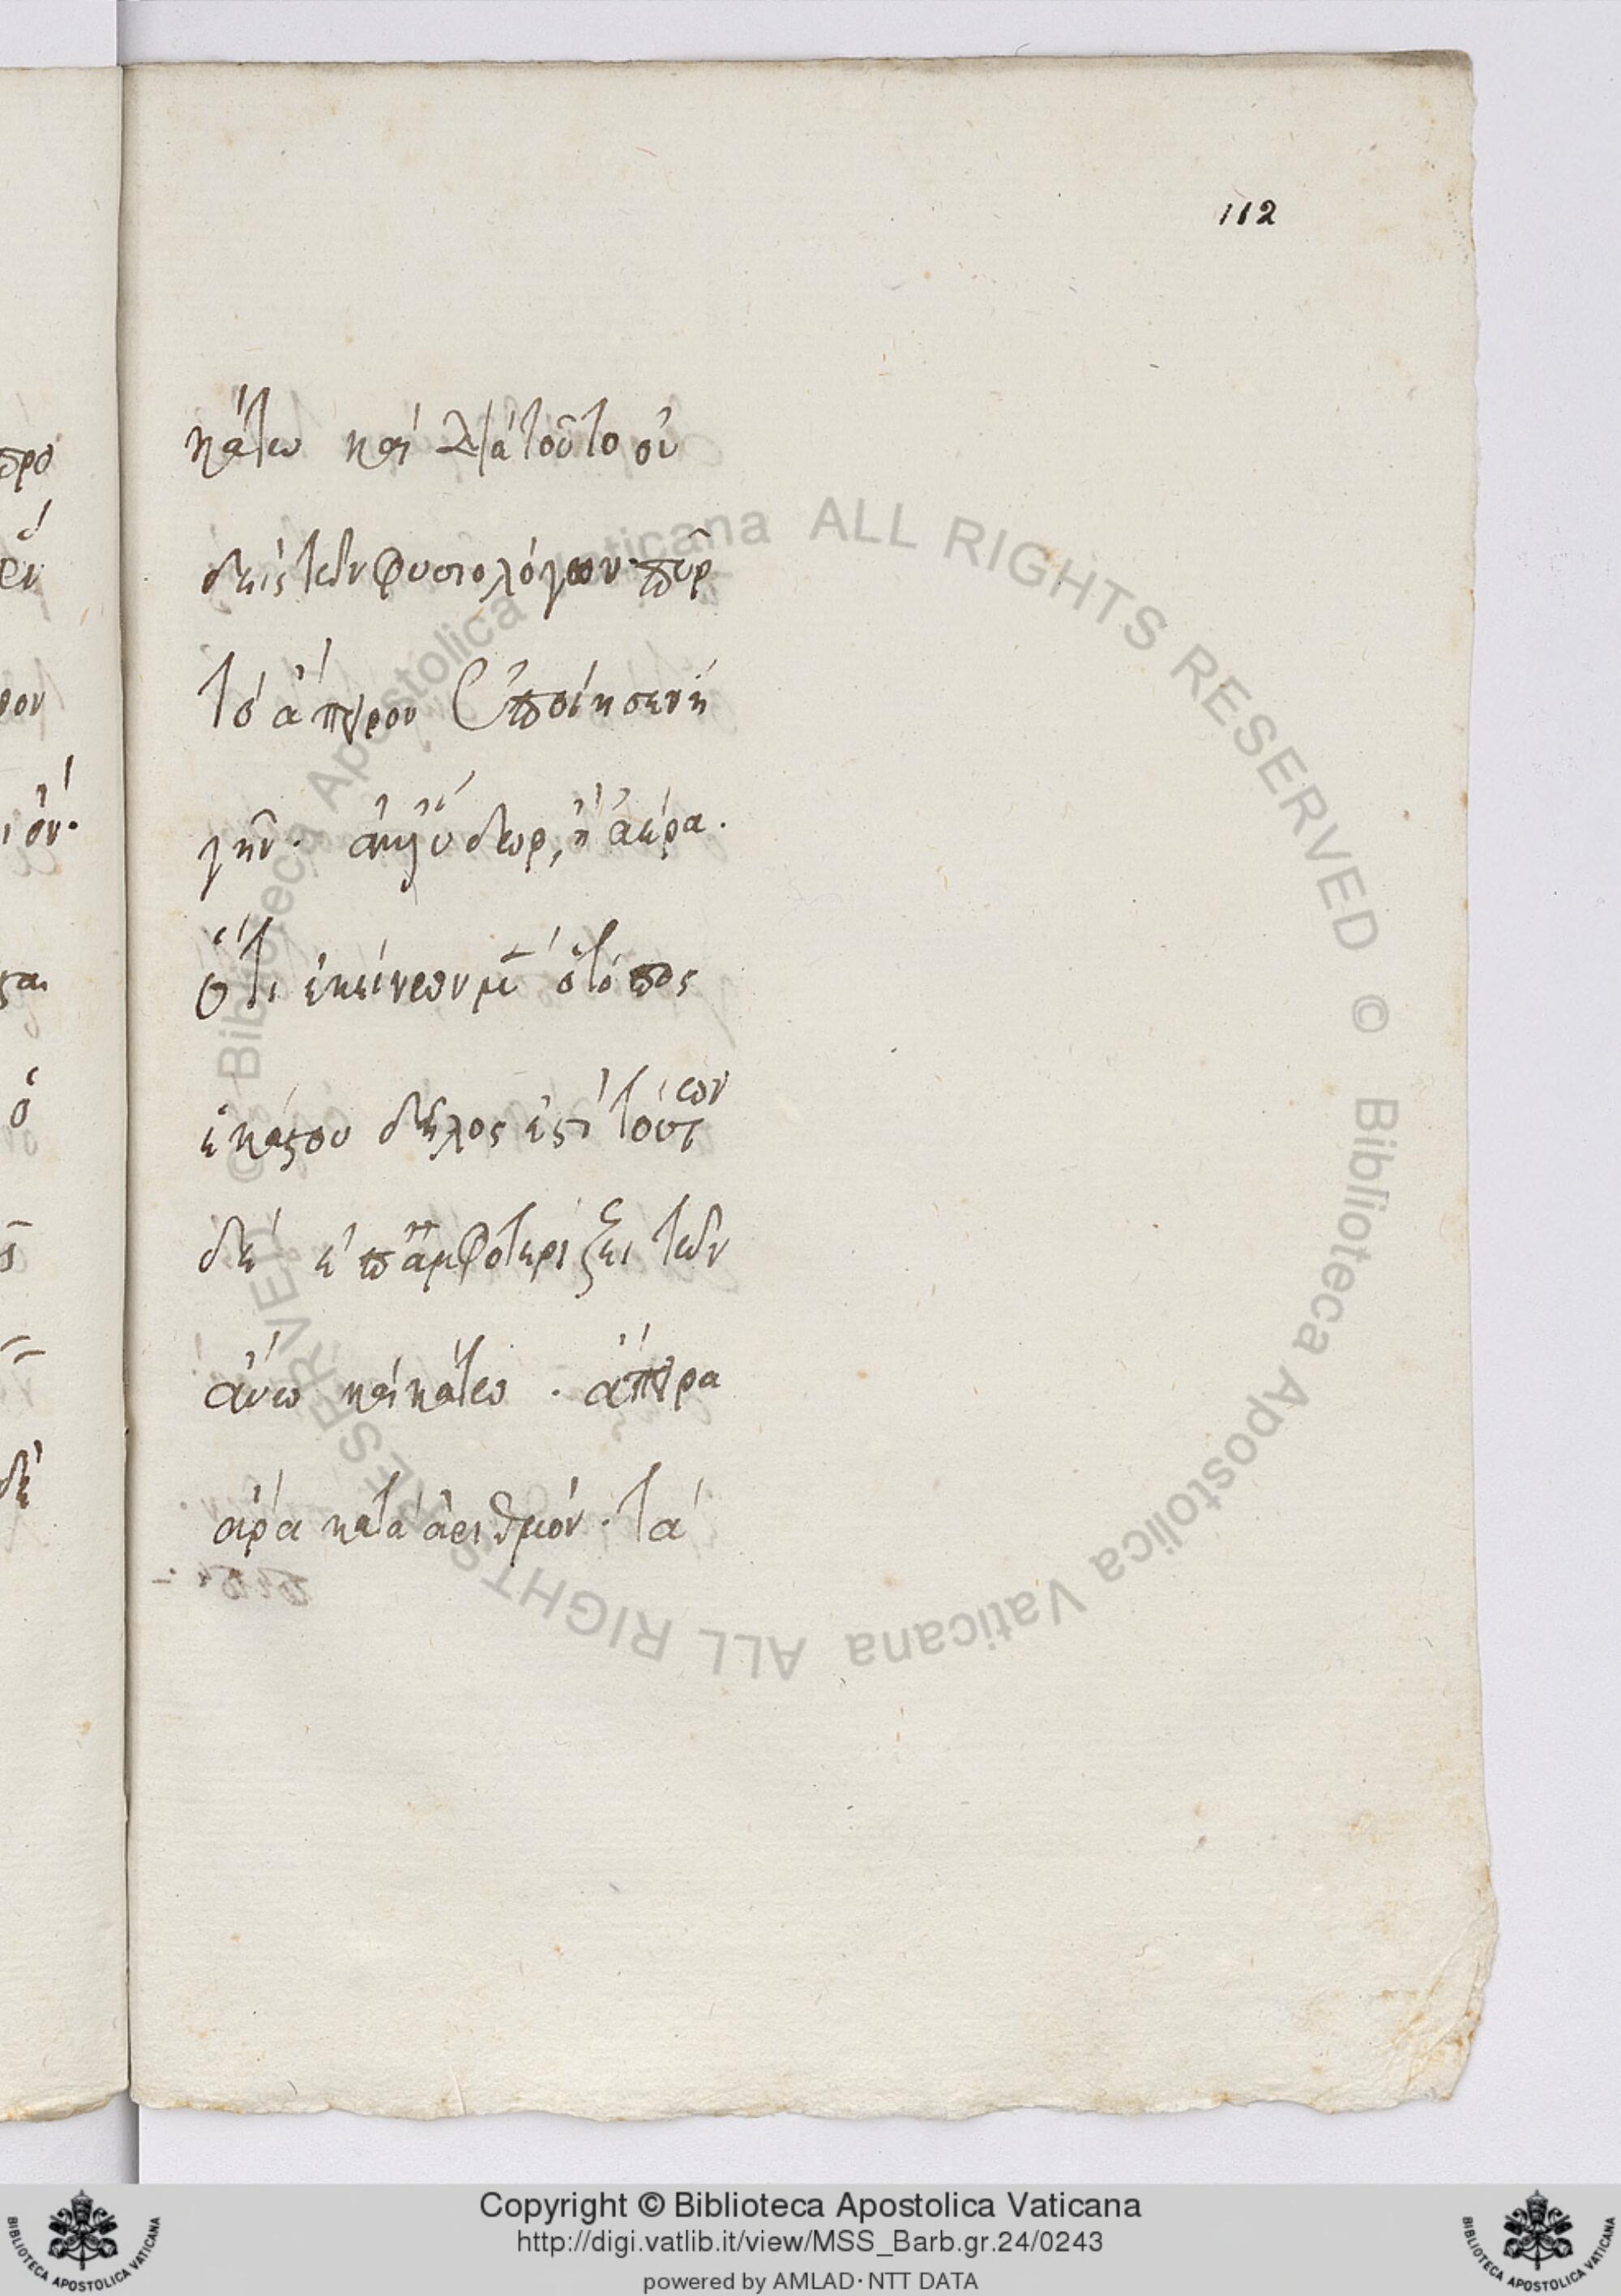 112
κάτω καὶ διὰ τοῦτο οὐ
δεὶς τῶν φυσιολόγων πῦρ
τὸ ἄπειρον ἐποίησεν ἢ
γῆν. ἀλλ' ὕδωρ, ἢ ἀέρα.
Ὅτι ἐκείνων μὲν ὁ τόπος
ἑκάστου δῆλός ἐστι τούτων
δὲ ἐπαμφοτερίζει τῶν
ἄνω καὶ κάτω . ἄπειρα
ἄρα κατὰ ἀριθμόν . τὰ
προ
ον
όν.
ὁ
δὲ
© Biblioteca Apostolica Vaticana ALL RIGHTS RESERVED © Biblioteca Apostolica Vaticana ALL RIGHTS RESERVED
Copyright © Biblioteca Apostolica Vaticana
http://digi.vatlib.it/view/MSS_Barb.gr.24/0243
powered by AMLAD·NTT DATA
BIBLIOTECA APOSTOLICA VATICANA
BIBLIOTECA APOSTOLICA VATICANA